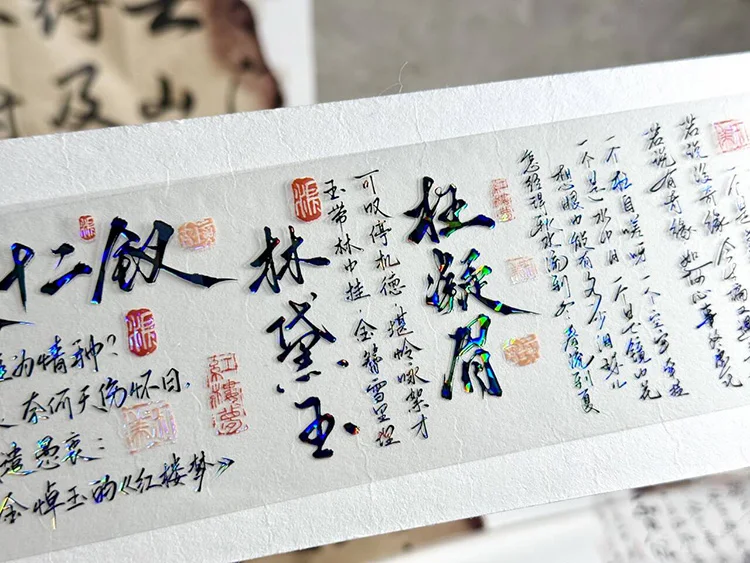 十二钗
为情种?
奈何天伤怀日,
遣愚衷:
金悼玉的《红楼梦》
红楼梦
林黛玉
可叹停机德 堪怜咏絮才
玉带林中挂,金簪雪里埋
枉凝眉
红楼梦
若说没奇缘 今生偏又遇
若说有奇缘 如何心事
一个枉自嗟呀 一个空劳牵挂
一个是水中月 一个是镜中花
想眼中能有多少泪珠儿
怎经得秋水流到冬 春流到夏
及
山